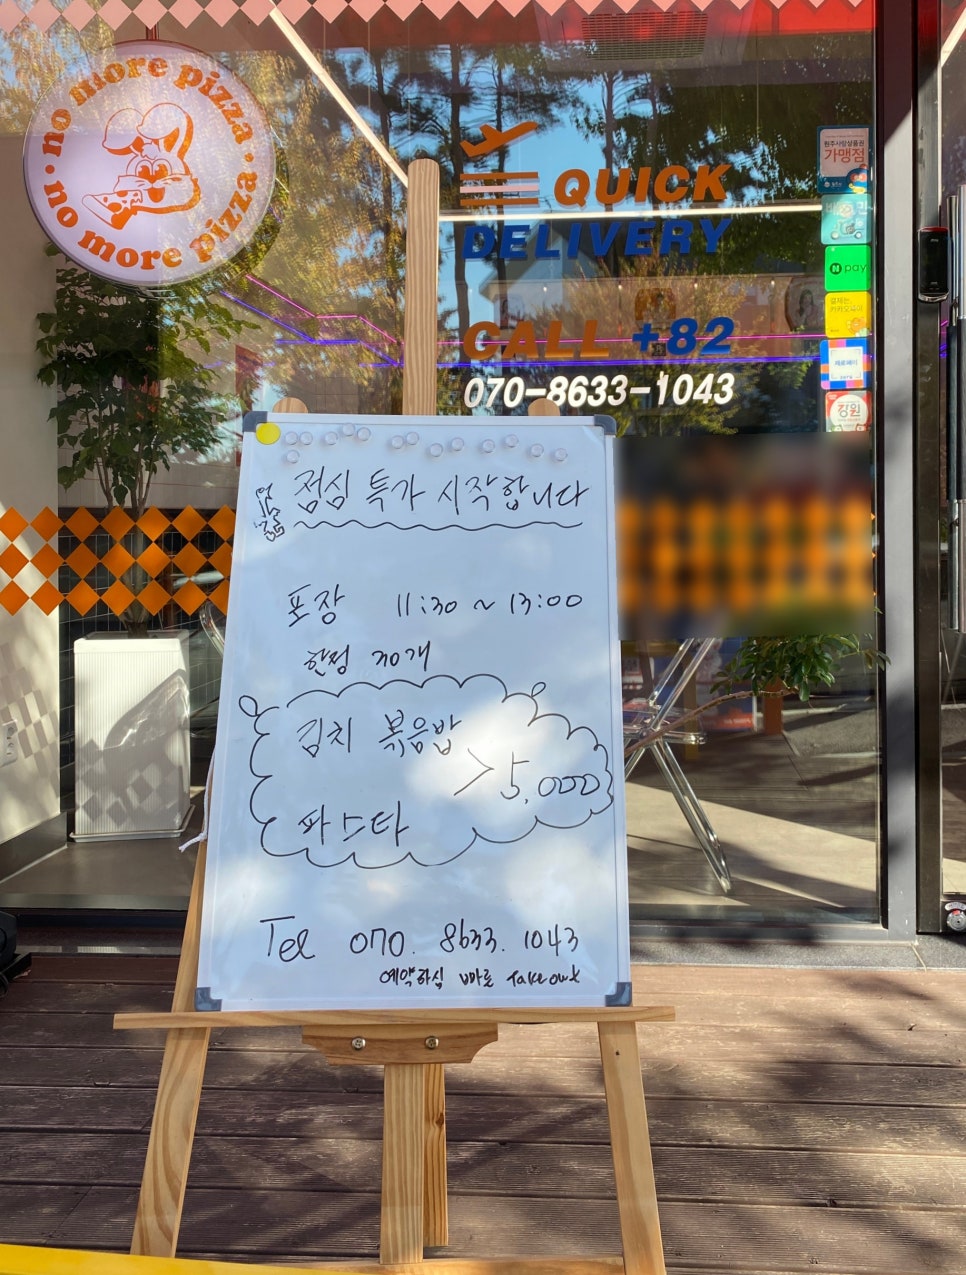 no more pizza
no more pizza
QUICK
DELIVERY
CALL +82
070-8633-1043
원주사랑상품권
가맹점
N pay
제로페이
강원
점심 특가 시작합니다
포장 11:30 ~ 13:00
한정 20개
김치 볶음밥
> 5,000
파스타
Tel 070. 8633. 1043
예약하심 빠른 Take out